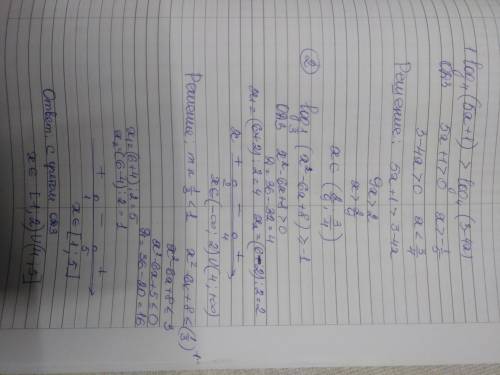 1 log₄(5x+1) > log₄(3-4x)
ОДЗ 5x+1>0 x>-1/5
3-4x>0 x<3/4
Решение: 5x+1>3-4x
9x>2
x>2/9
x∈(2/9; 3/4)
② log 1/3 (x²-6x+8) ≥ -1
ОДЗ x²-6x+8>0
Д=36-32=4
x₁=(6+2):2=4 x₂=(6-2):2=2
x + 2 - 4 +
x∈(-∞;2)∪(4;+∞)
Решение: т.к 1/3<1 x²-6x+8≤(1/3)⁻¹
x²-6x+8≤3
x²-6x+5≤0
Д=36-20=16
x₁=(6+4):2=5
x₂=(6-4):2=1
+ 1 - 5 +
x∈[1;5]
Ответ: с учетом ОДЗ
x∈[1;2)∪(4;5]